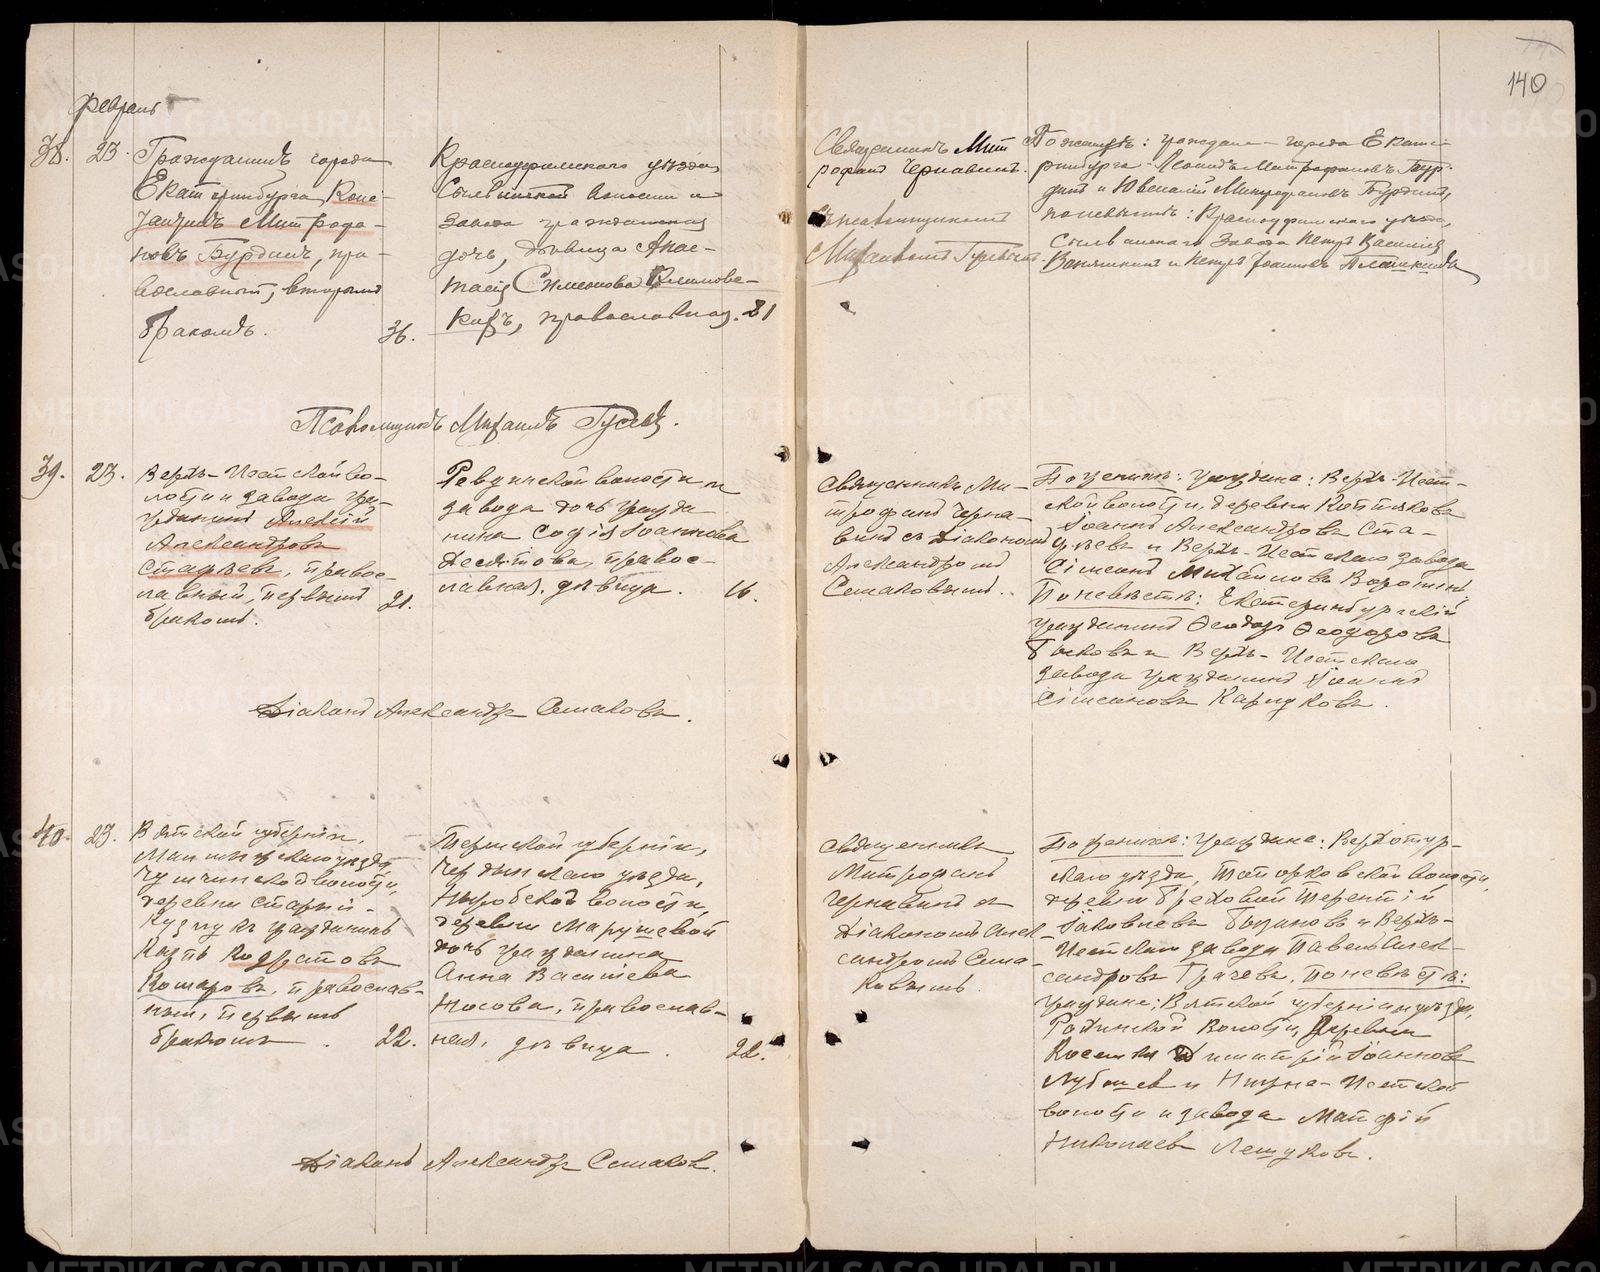 140
Февраль
38. 23. Гражданинъ города
Екатеринбурга
Митрофа-
новъ Бурдинъ, пра-
вославный, вторымъ
бракомъ. 36.
Красноуфимскаго уѣзда
волости и
завода
дочь, дѣвица Анас-
Симеонова
православная. 21
Священникъ Мит
рофанъ Чернавинъ
съ псаломщикомъ
Михаиломъ Гусевымъ.
По женихѣ: граждане города Екате-
ринбурга Леонидъ Митрофановъ Бур-
динъ и Ювеналій Митрофановъ Бурдинъ,
по невѣстѣ: Красноуфимскаго уѣзда,
завода Петръ
и Петръ Іоанновъ
Псаломщикъ Михаилъ Гусевъ.
39. 23. Верхъ-Исетской во-
лости и завода гра-
жданинъ Алексій
Александровъ
православ-
лавный, первымъ 21.
бракомъ.
Ревдинской волости и
завода дочь гражда
нина Софія Іоаннова
Десятова, правос-
лавная, дѣвица. 16.
Священникъ Ми-
трофанъ Черна-
винъ съ Діакономъ
Александромъ
Семаковымъ.
По женихѣ: граждане: Верхъ-Исет-
ской волости, деревни
Іоаннъ Александровъ Ста-
и Верхъ-Исетскаго завода
Сімеонъ Михайловъ
По невѣстѣ: Екатеринбургскій
гражданинъ Ѳеодоръ Ѳеодоровъ
Быковъ и Верхъ-Исетскаго
завода гражданинъ Іоаннъ
Сімеоновъ
Діаконъ Александръ Семаковъ.
40. 23. Вятской губерніи,
Малмыжскаго уѣзда,
волости,
деревни Старый-
гражданинъ
Кодратовъ
Комаровъ, православ-
ный, первымъ
бракомъ. 22.
Пермской губерніи,
Чердынскаго уѣзда,
Ныробской волости,
деревни Марушевой
дочь гражданина
Анна Васильева
Носова, православ-
ная, дѣвица. 22.
Священникъ
Митрофанъ
Чернавинъ съ
Діакономъ Алек-
сандромъ Сема-
ковымъ.
По женихѣ: граждане: Верхотур-
скаго уѣзда, Топорковской волости,
деревни Терентій
Іаковлевъ и Верхъ-
Исетскаго завода Павелъ Алек-
сандровъ Грачевъ, по невѣстѣ:
граждане: Вятской губерніи и уѣзда,
волости, деревни
Димитрій Іоанновъ
и Нижне-Исетской
волости и завода Матфій
Николаевъ
Діаконъ Александръ Семаковъ.
METRIKI.GASO-URAL.RU